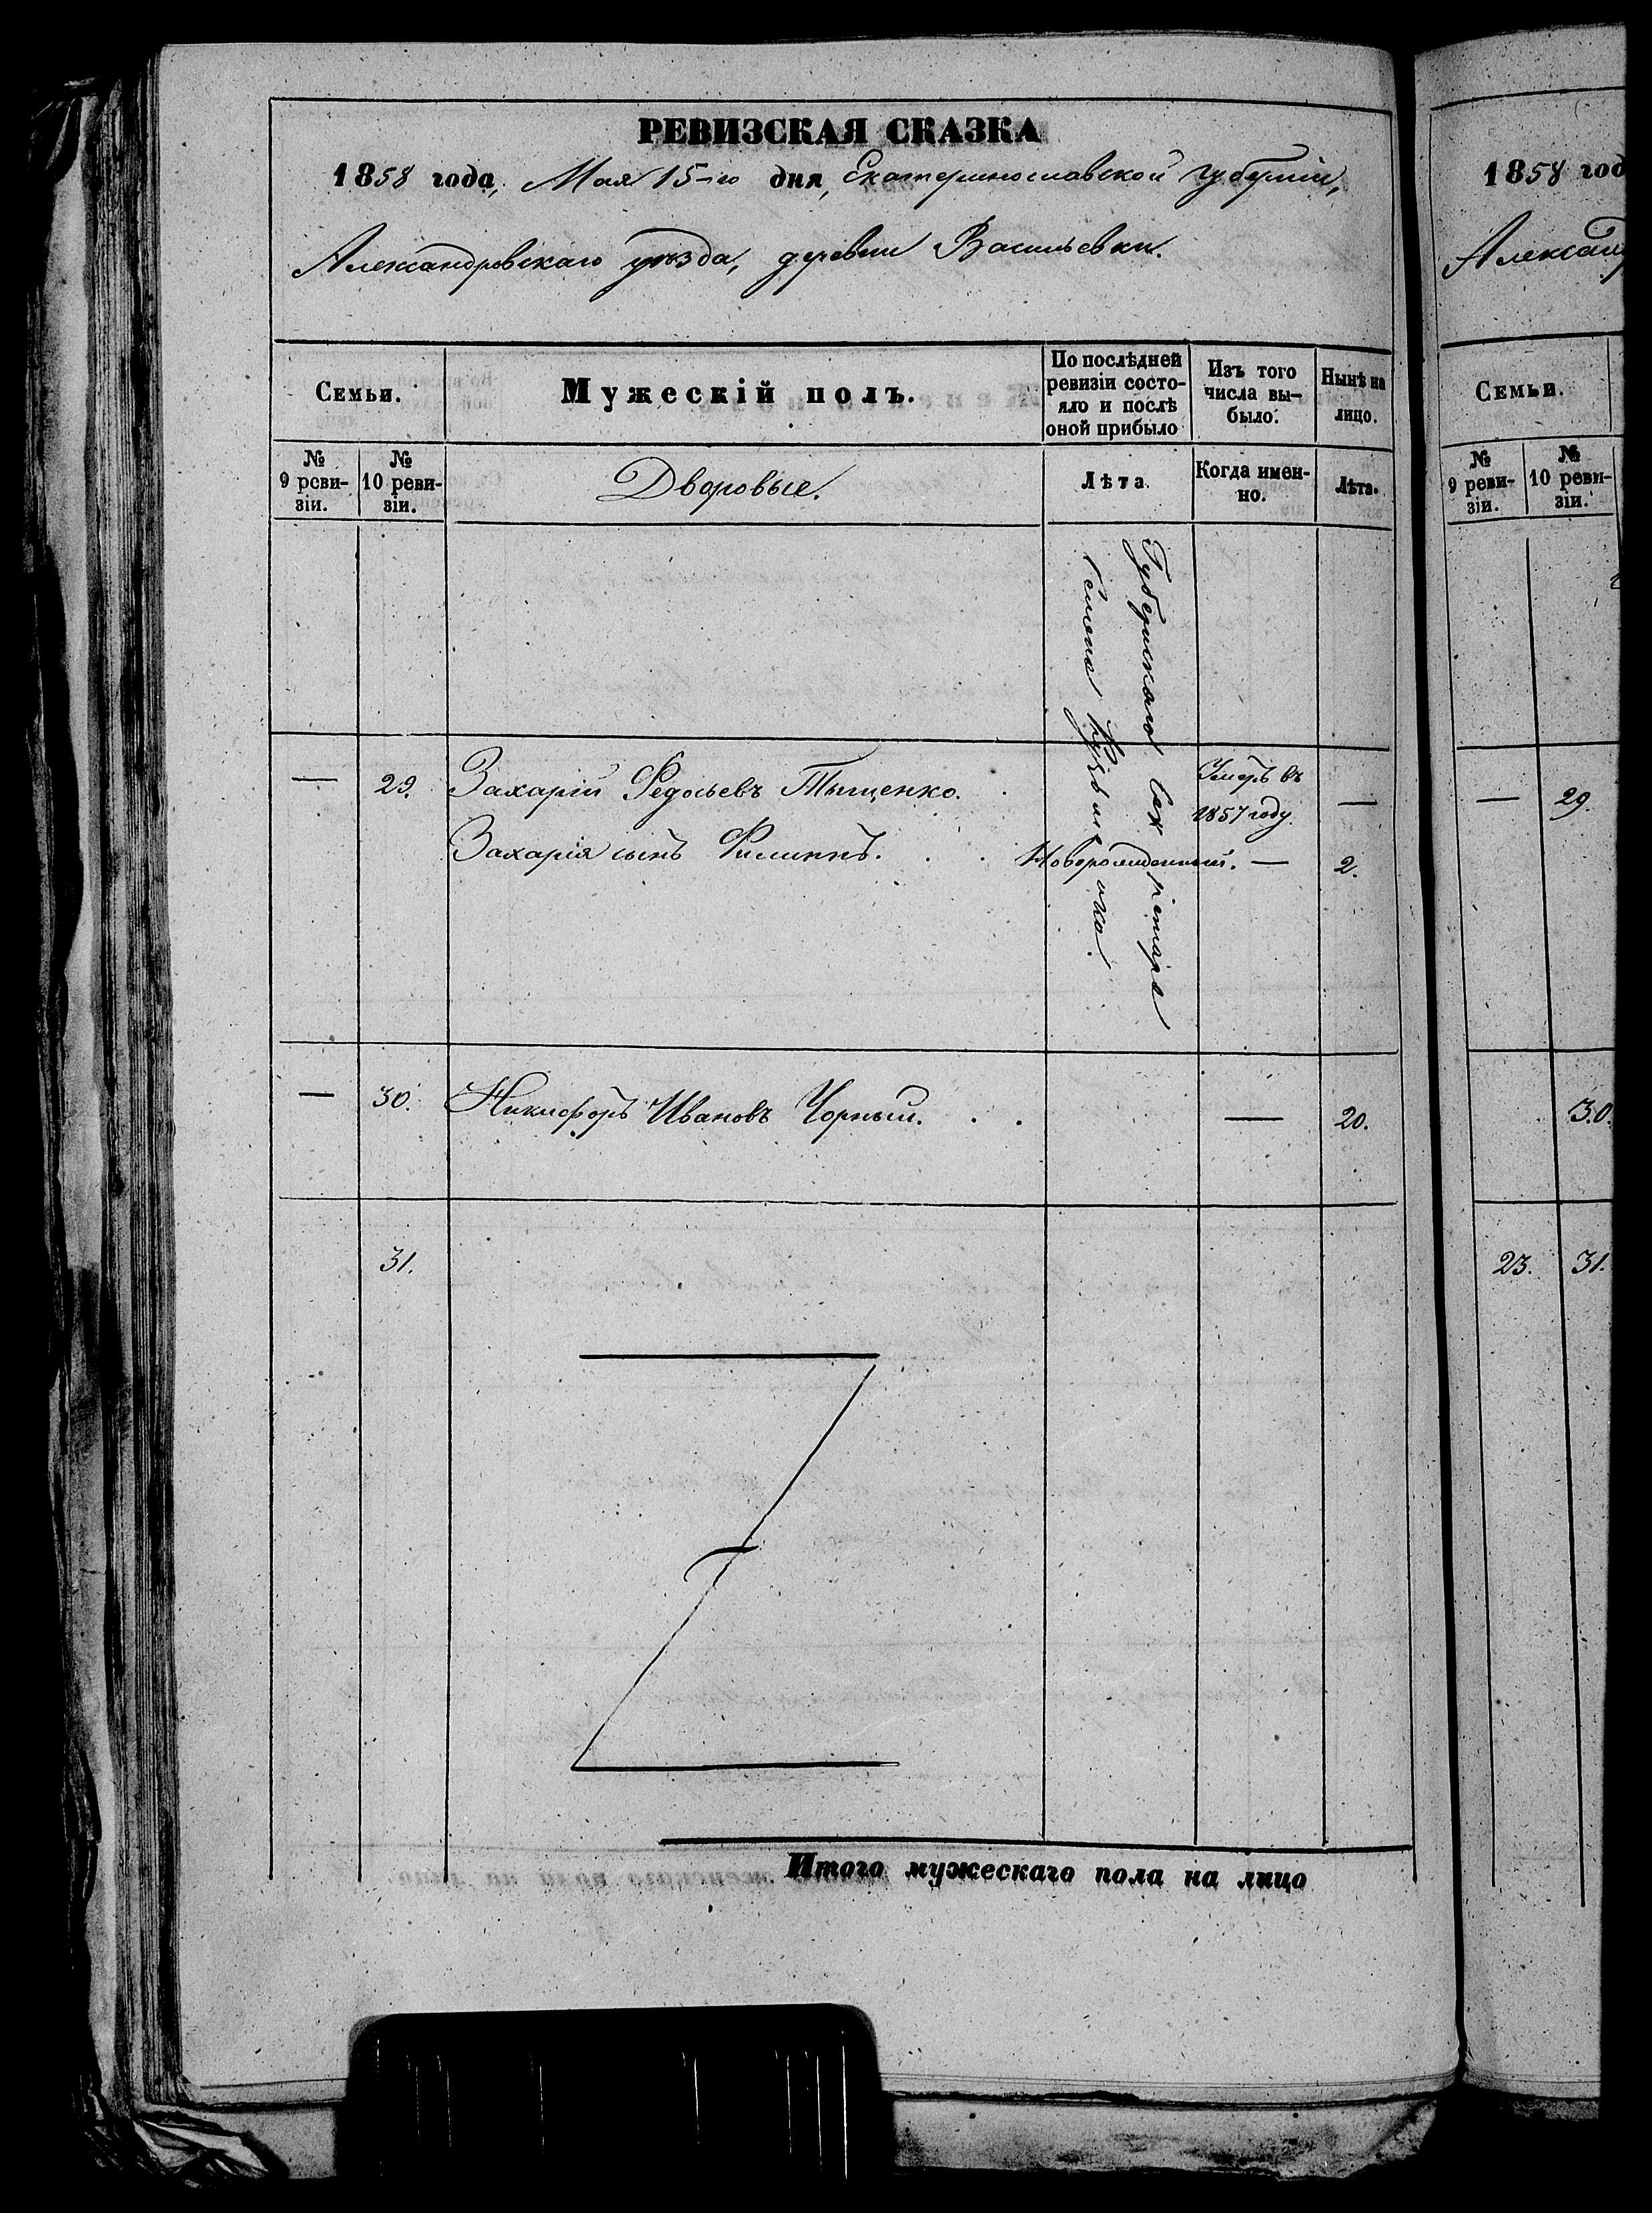 РЕВИЗСКАЯ СКАЗКА
1858 года, Мая 15-го дня, Екатеринославской губерніи,
Александровскаго уѣзда, деревни Васильевки.
Семьи.
Мужескій полъ.
По послѣдней
ревизіи состо-
яло и послѣ
оной прибыло
Изъ того
числа вы-
было.
Нынѣ на
лицо.
№
9 реви-
зіи.
№
10 реви-
зіи.
Дворовые.
Лѣта.
Когда имен-
но.
Лѣта.
Губернскаго Секретаря
Семена
— 29. Захарій Федосьевъ Тыщенко. Умеръ въ —
1857 году.
Захарія сынъ Филиппъ. Новорожденный. — 2.
— 30. Никифоръ Ивановъ Чорный. — 20.
31.
Итого мужескаго пола на лицо
1858 год
Александ
Семьи.
№
9 реви-
зіи.
№
10 реви-
зіи.
— 29.
30.
23. 31.